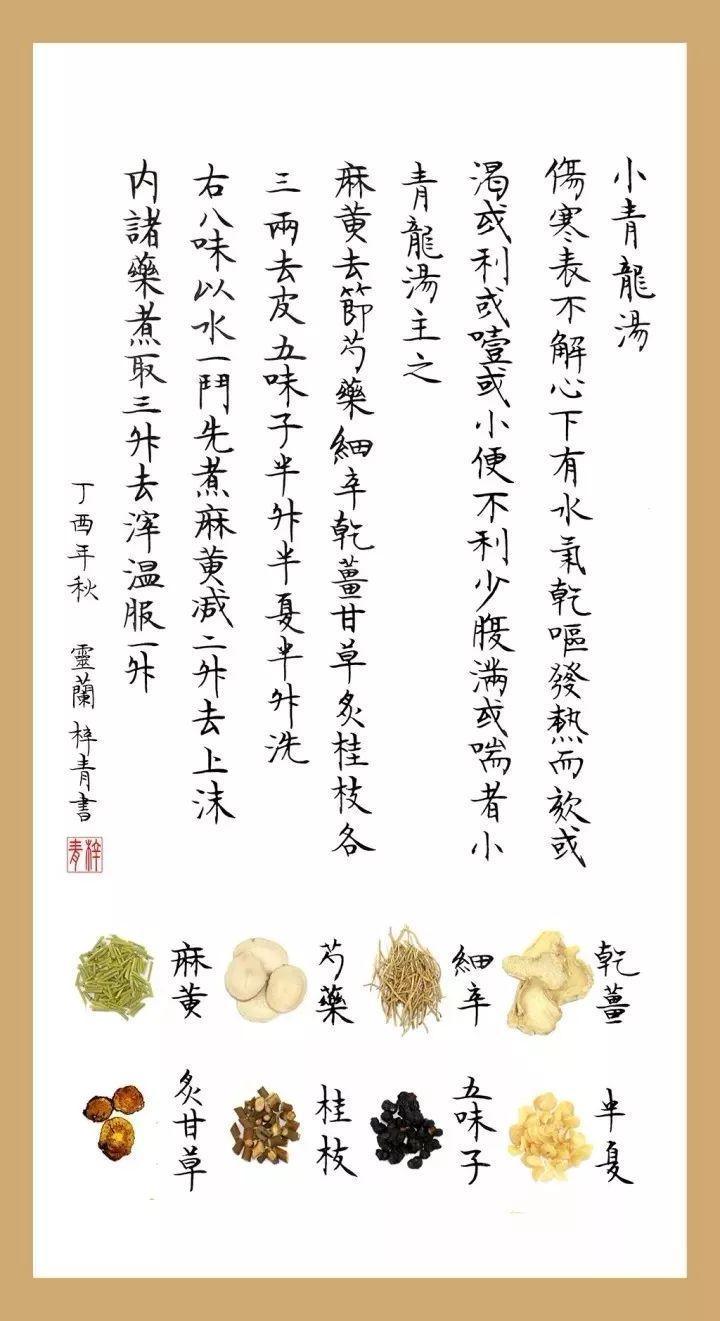 小青龍湯
傷寒表不解心下有水氣乾嘔發熱而欬或
渴或利或噎或小便不利少腹滿或喘者小
青龍湯主之
麻黄去節芍藥細辛乾薑甘草炙桂枝各
三兩去皮五味子半升半夏半升洗
右八味以水一鬥先煮麻黄減二升去上沫
内諸藥煮取三升去滓温服一升
丁酉年秋 靈蘭梓青書
梓青
乾薑
細辛
芍藥
麻黄
半夏
五味子
桂枝
炙甘草